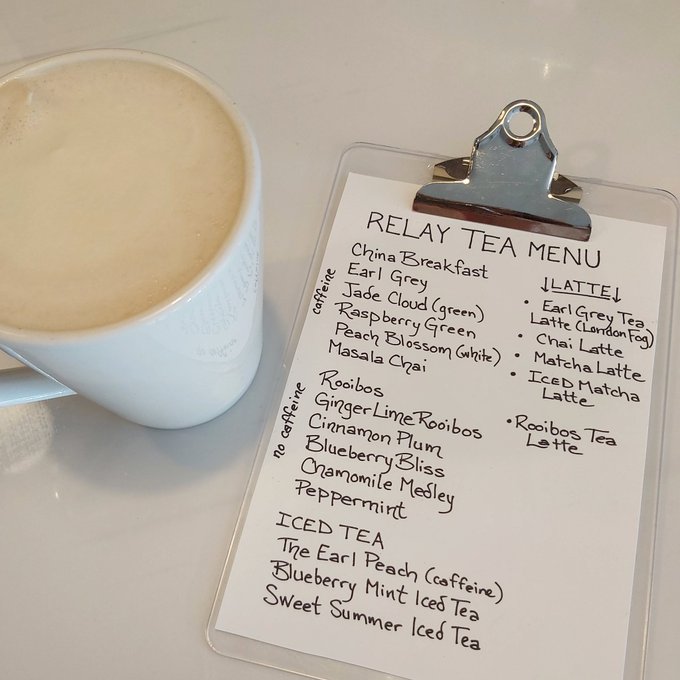 RELAY TEA MENU
caffeine
China Breakfast
Earl Grey
Jade Cloud (green)
Raspberry Green
Peach Blossom (white)
Masala Chai
no caffeine
Rooibos
Ginger Lime Rooibos
Cinnamon Plum
Blueberry Bliss
Chamomile Medley
Peppermint
ICED TEA
The Earl Peach (caffeine)
Blueberry Mint Iced Tea
Sweet Summer Iced Tea
↓LATTE↓
• Earl Grey Tea
Latte (London Fog)
• Chai Latte
• Matcha Latte
• ICED Matcha
Latte
• Rooibos Tea
Latte